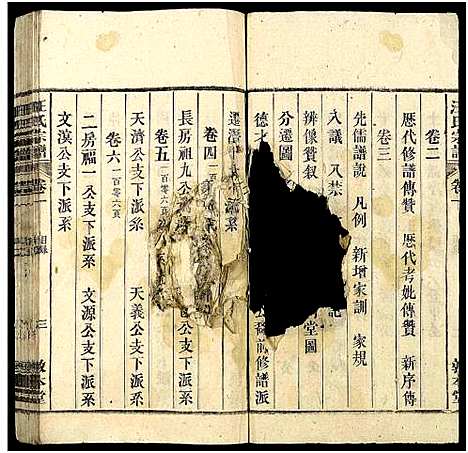 汪氏宗譜
卷一
敦本堂
卷二
歷代修譜傳贊 歷代考妣傳贊 新序傳
卷三
先儒譜說 凡例 新增家訓 家規
入議 八禁 記
辨像贊叙 堂圖
分遷圖
德才 公裔前修譜派
遷
卷四
長房祖九公支下派系
卷五 一百零六頁
天濟公支下派系 天義公支下派系
卷六 一百零六頁
二房福一公支下派系 文源公支下派系
文漢公支下派系
汪氏宗譜
卷一
目錄
三
敦本堂